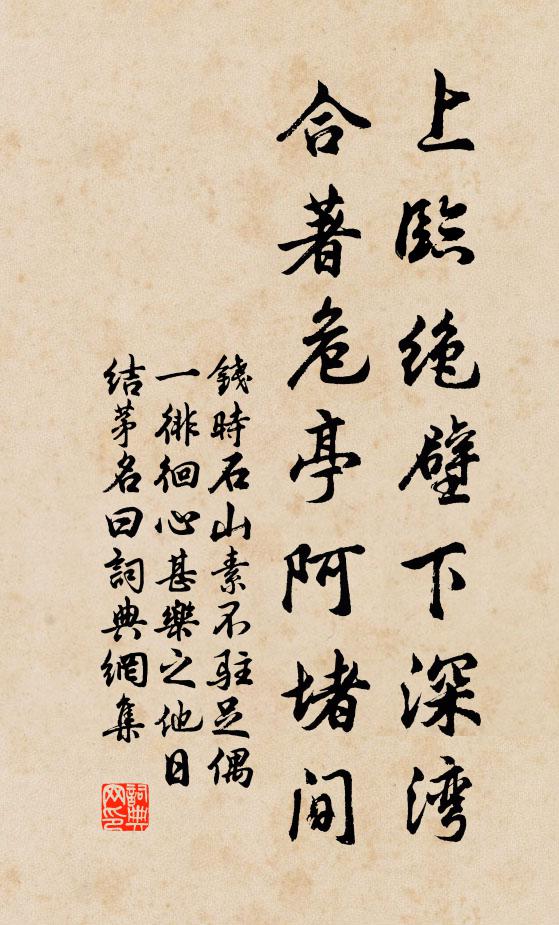 上臨絶壁下深湾
合著危亭阿堵間
錢時石山素不駐足偶
一徘徊心甚樂之他日
结茅名曰詞典網集
詞典
网印